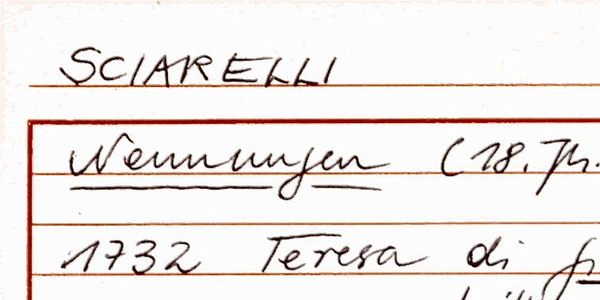 SCIARELLI
Nennungen (18. Jh.
1732 Teresa di